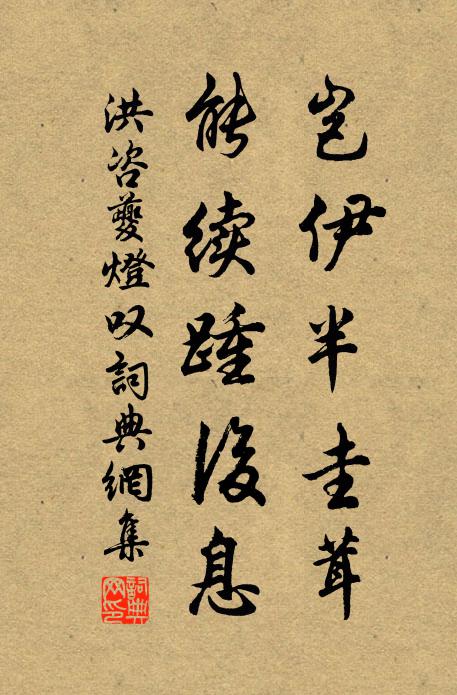 岂伊半圭茸
能续踵後息
洪咨夔燈叹詞典網集
詞典网印